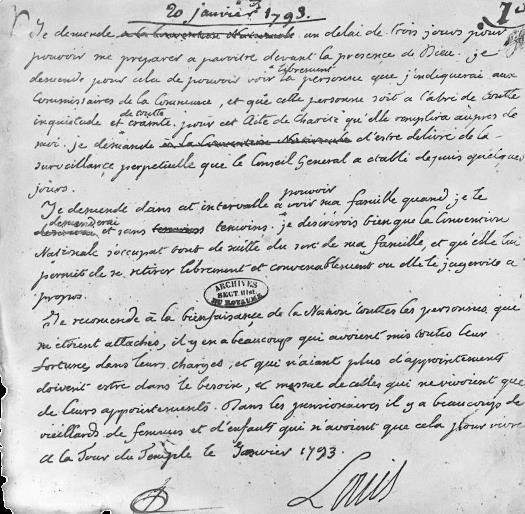 20 janvier 1793.
Je demande a la Convention Nationale un delai de trois jours pour
pouvoir me preparer a paroitre devant la presence de Dieu. je
demande pour cela de pouvoir voir librement la personne que j'indiquerai aux
Commissaires de la Commune, et que cette personne soit a l'abri de toutte
inquietude et de toutte crainte pour cet Acte de Charité qu'elle remplira aupres de
moi. je demande a la Convention Nationale d'estre delivré de la
surveillance perpetuelle que le Conseil General a etabli depuis quelques
jours.
Je demande dans cet intervalle a pouvoir voir ma famille quand je le
demanderai et sans temoins. je desirerois bien que la Convention
Nationale s'occupat tout de suitte du sort de ma famille, et qu'elle lui
permit de se retirer librement et convenablement ou elle le jugeroit a
propos.
ARCHIVES
SECT. HIST.
DU ROYAUME
Je recomende à la bienfaisance de la Nation touttes les personnes qui
m'etoient attachés, il y en a beaucoup qui avoient mis toutes leur
fortunes dans leurs charges, et qui n'aiant plus d'appointements
doivent estre dans le besoin, et mesme de celles qui ne vivoient que
de leurs appointements. Dans les pensionaires il y a beaucoup de
vieillards de femmes et d'enfants qui n'avoient que cela pour vivre
A la Tour du Temple le Janvier 1793.
Louis